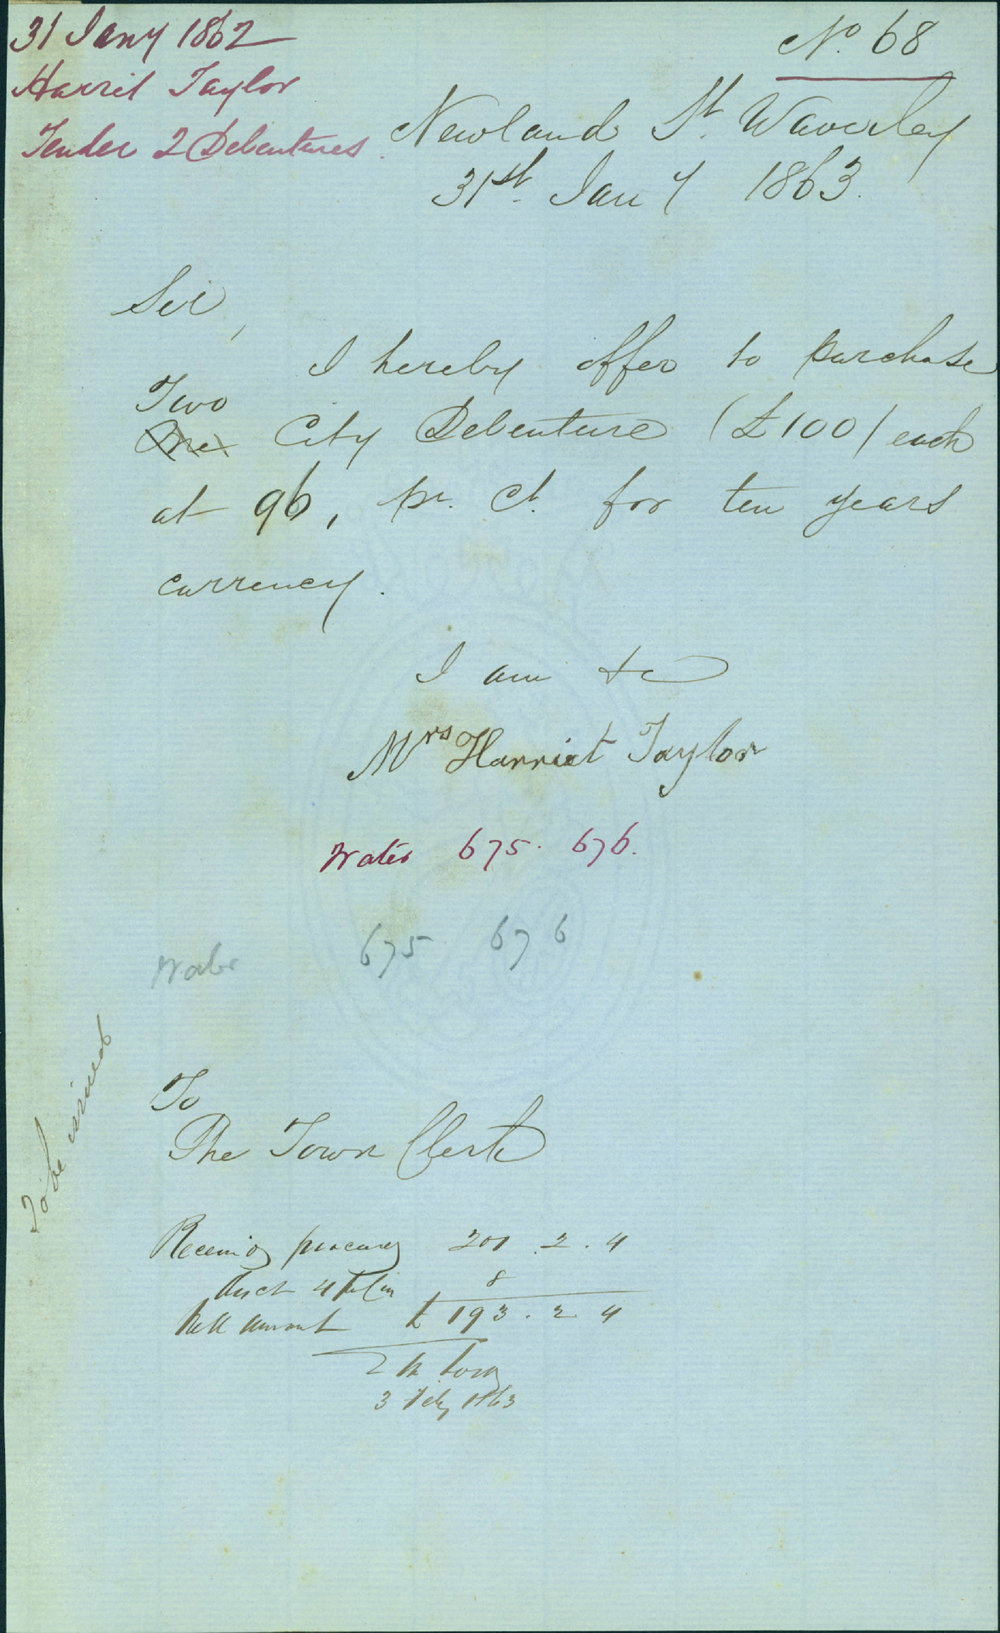 31 Jany 1862
Harriet Taylor
Tender 2 Debentures.
No. 68
Newland St. Waverley
31st. Jany 1863.
Sir,
I hereby offer to purchase
Two
One City Debenture (£100) each
at 96, pr. Ct. for ten years
currency.
I am &c
Mrs Harriet Taylor
Water 675. 676.
Water 675 676
To be issued
To
The Town Clerk
200. 2. 4
8
amount £ 193. 2 4
3 Feby 1863